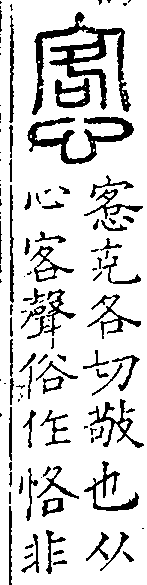 愙
愙克各切敬也从
心客聲俗作恪非